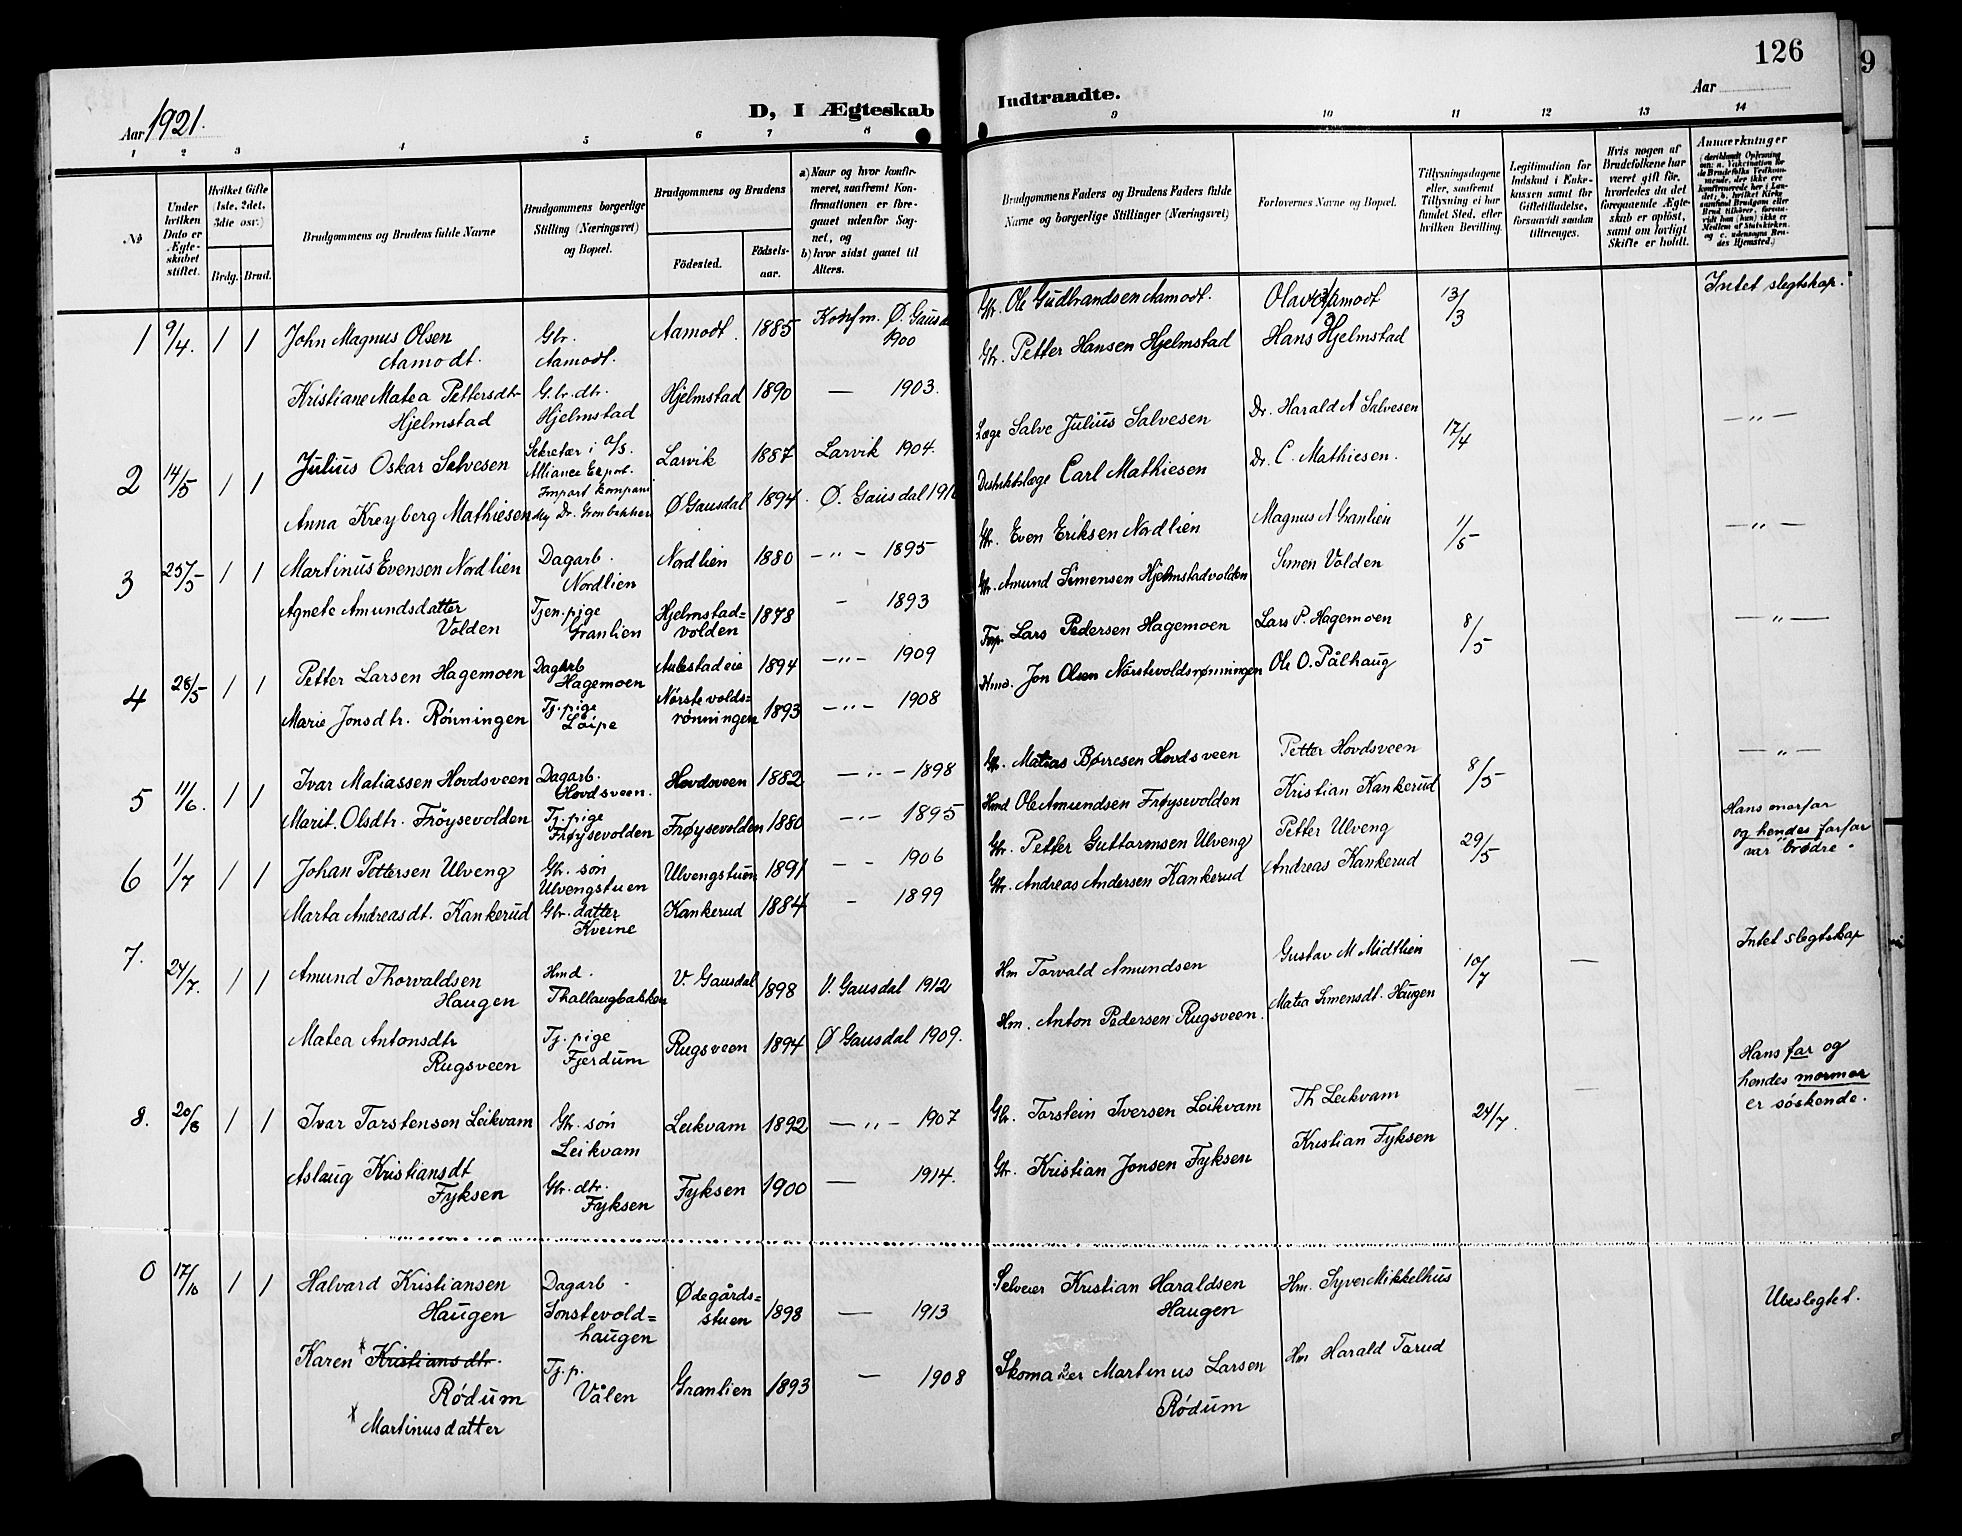 126
9
Aar 1921.
D, I Ægteskab
Indtraadte.
Aar
1 2 3 4 5 6 7 8
9 10 11 12 13 14
№
Under hvilken Dato er Ægteskabet stiftet.
Hvilket Gifte (1ste, 2det, 3die osv.)
Brdg. Brud.
Brudgommens og Brudens fulde Navne
Brudgommens borgerlige Stilling (Næringsvei) og Bopæl.
Brudgommens og Brudens
Födested.
Födselsaar.
a) Naar og hvor konfirmeret, saafremt Konfirmationen er foregaaet udenfor Sognet, og
b) hvor sidst gaaet til Alters.
Brudgommens Faders og Brudens Faders fulde Navne og borgerlige Stillinger (Næringsvei)
Forlovernes Navne og Bopæl.
Tillysningsdagene eller, saafremt Tillysning ei har fundet Sted, efter hvilken Bevilling.
Legitimation for Indskud i Enkekassen samt for Giftetilladelse, forsaavidt saadan tiltrænges.
Hvis nogen af Brudefolkene har været gift för, hvorledes da det foregaaende Ægteskab er oplöst, samt om lovligt Skifte er holdt.
Anmærkninger
1 9/4. 1 1 John Magnus Olsen Gbr. Aamodt. 1885 Konfm. Ø. Gausd
Aamodt. Aamodt. 1900
Gbr. Ole Gudbrandsen Aamodt. Olav Aamodt 13/3 Intet slegtskap.
Kristiane Matea Pettersdtr G.br.dtr. Hjelmstad 1890 — 1903.
Hjelmstad Hjelmstad
Gbr. Petter Hansen Hjelmstad Hans Hjelmstad
2 14/5 1 1 Julius Oskar Salvesen Sekretær i a/s. Larvik 1887 Larvik 1904.
Alliance Export.
Import kompani
Læge Salve Julius Salvesen Dr. Harald A Salvesen 17/4 — „ —
Anna Kreyberg Mathiesen Ø Gausdal 1894. Ø. Gausdal
Distriktslæge Carl Mathiesen Dr. C. Mathiesen.
3 25/5 1 1 Martinus Evensen Nordlien Dagarb. Nordlien 1880 — „ — 1895
Nordlien
Gbr. Even Eriksen Nordlien Magnus A Granlien 1/5 — „ —
Agnete Amundsdatter Tjen.pige Hjelmstad= 1878 — 1893
Volden Granlien volden
Gbr. Amund Simensen Hjelmstadvolden Simen Volden
4 28/5 1 1 Petter Larsen Hagemoen Dagarb Aulestadeie 1894 — „ — 1909
Hagemoen
Lars Pedersen Hagemoen Lars P. Hagemoen 8/5 — „ —
Marie Jonsdtr. Rönningen Tj.pige Nörstevolds- 1893 — „ — 1908
Löipe rønningen
Hmd. Jon Olsen Nörstevoldsrønningen Ole O. Pålhaug
5 11/6. 1 1 Ivar Matiassen Hovdsveen Dagarb. Hovdsveen 1882 — „ — 1898
Hovdsveen.
Gbr. Matias Børresen Hovdsveen Petter Hovdsveen 8/5 — „ —
Marit. Olsdtr. Fröysevolden Tj.pige Frøysevolden 1880 — „ — 1895
Frøysevolden
Hmd Ole Amundsen Frøysevolden Kristian Kankerud
6 1/7 1 1 Johan Pettersen Ulveng Gbr. søn Ulvengstuen 1891 — — 1906
Ulvengstuen
Gbr. Petter Guttormsen Ulveng Petter Ulveng 29/5 Hans morfar
og hendes farfar
var brødre.
Marta Andreasdt. Kankerud Gbr. datter Kankerud 1884 — 1899
Kveine
Gbr. Andreas Andersen Kankerud Andreas Kankerud
7. 24/7. 1 1 Amund Thorvaldsen Hmd. V. Gausdal 1898 V. Gausdal 1912
Haugen Thallaugbakken
Hm Torvald Amundsen Gustav M Midtlien 10/7 — Intet slegtskap
Matea Antonsdtr Tj.pige Rugsveen 1894 Ø Gausdal 1909.
Rugsveen Fjerdum
Hm. Anton Pedersen Rugsveen. Matea Simensdt. Haugen
8. 20/8 1 1 Ivar Torstensen Leikvam Gbr. søn Leikvam 1892 — „ — 1907
Leikvam
Gbr. Torstein Iversen Leikvam Th Leikvam 24/7. — Hans far og
hendes mormor
er søskende.
Aslaug Kristiansdt Gbr. dtr. Fyksen 1900 — 1914.
Fyksen Fyksen
Gbr. Kristian Jonsen Fyksen Kristian Fyksen
0 17/10 1 1 Halvard Kristiansen Dagarb. Ødegårds= 1898 — 1913
Haugen Sonstevold= stuen
haugen
Selveier Kristian Haraldsen Hm. Syver Mikkelhus Ubeslegtet.
Haugen
Karen × Kristiansdtr. Tj.p. Granlien 1893 — 1908
Rødum Vålen
× Martinusdatter
Skomaker Martinus Larsen Hm Harald Torud
Rødum